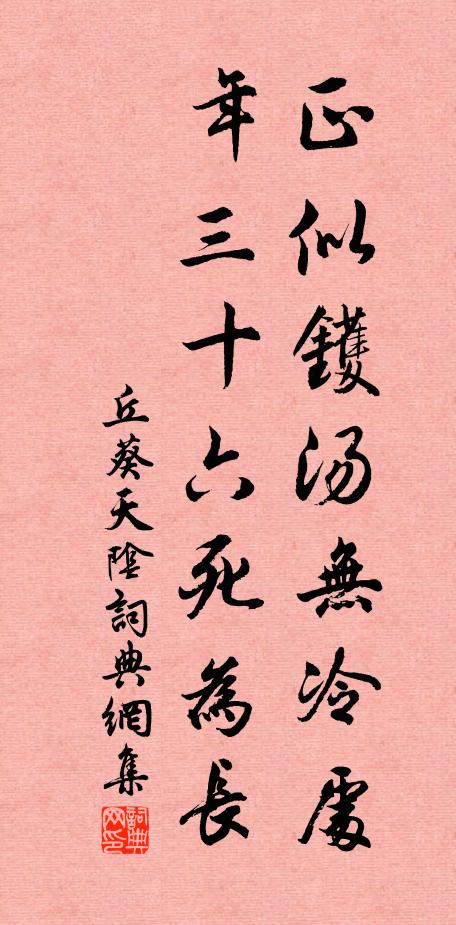 正似鑊湯無冷處
年三十六死為長
丘葵天陰詞典網集
詞典
网印